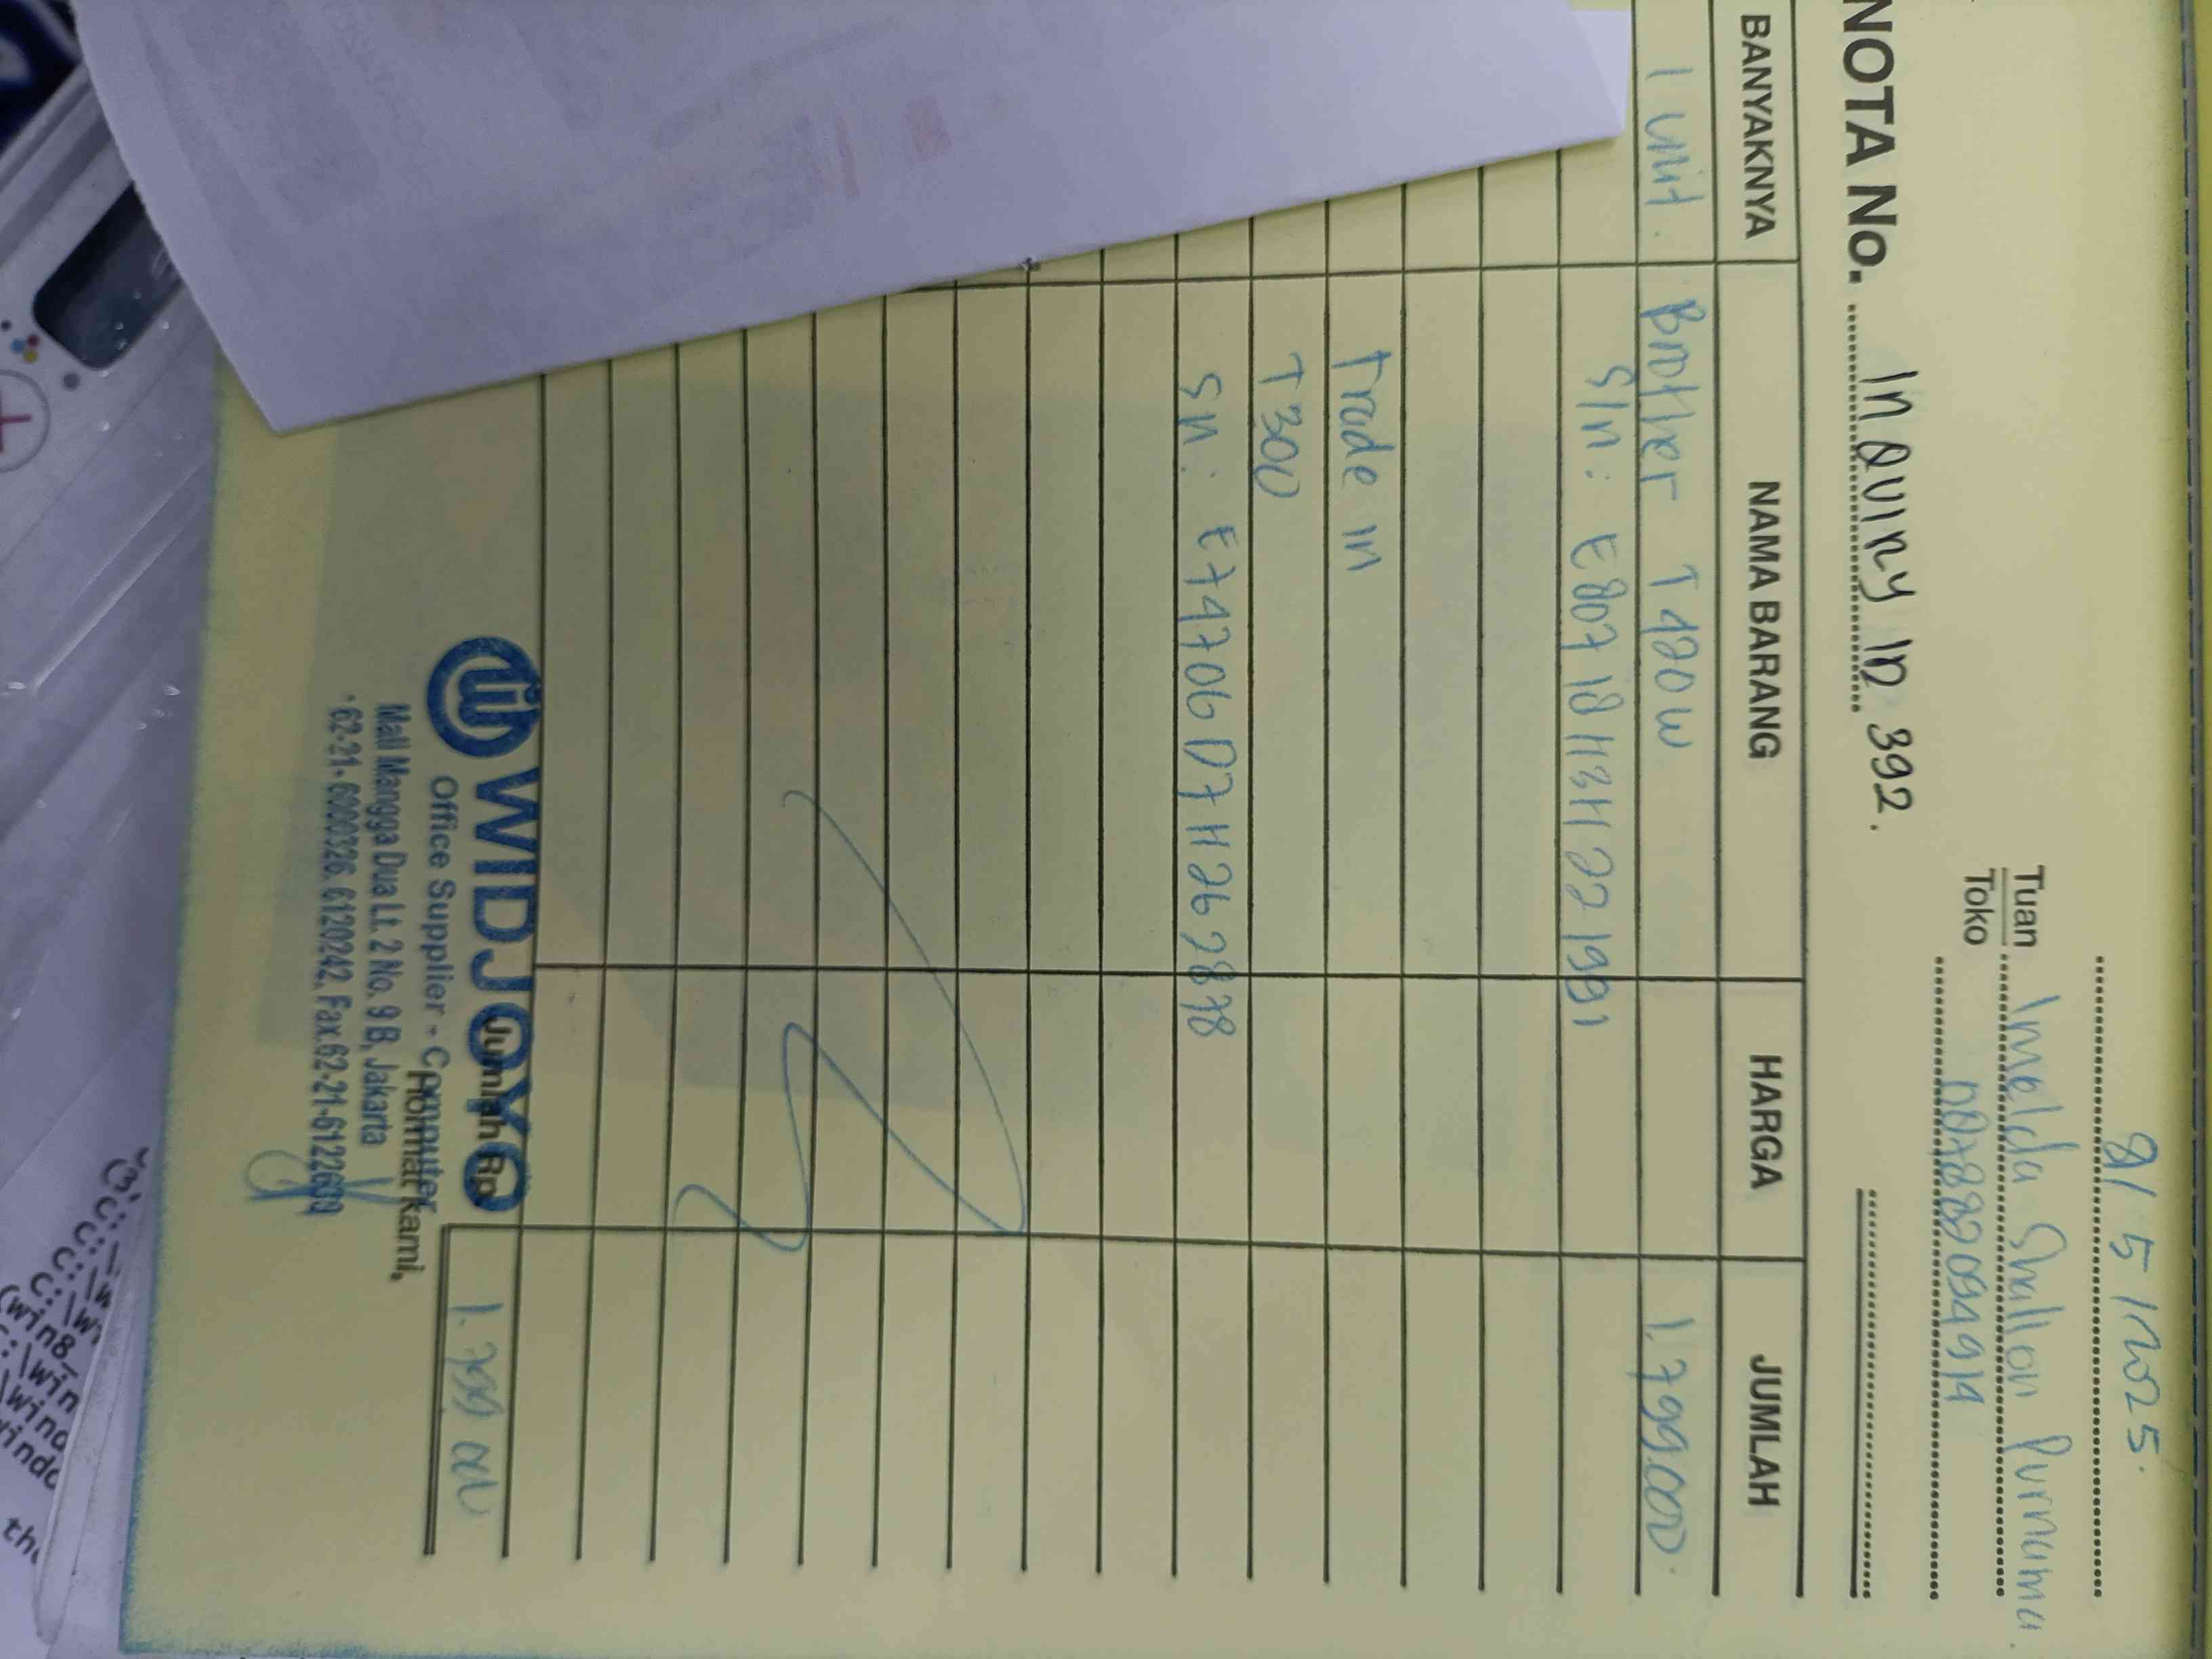 8/5/2025.
Tuan Imelda Shallon Purnama
Toko 087882094914
NOTA No. Inquiry In 392.
BANYAKNYA NAMA BARANG HARGA JUMLAH
1 unit. Brother T420W 1.799.000.
S/n: E80718H3H221991
Trade in
T300
Sn: E74706D7H262878
Jumlah Rp. 1.799.000
WIDJOYO
Office Supplier - Computer
Hormat kami,
Mall Mangga Dua Lt. 2 No. 9 B, Jakarta
62-21-6000326, 6120242, Fax.62-21-6122609
(win8_